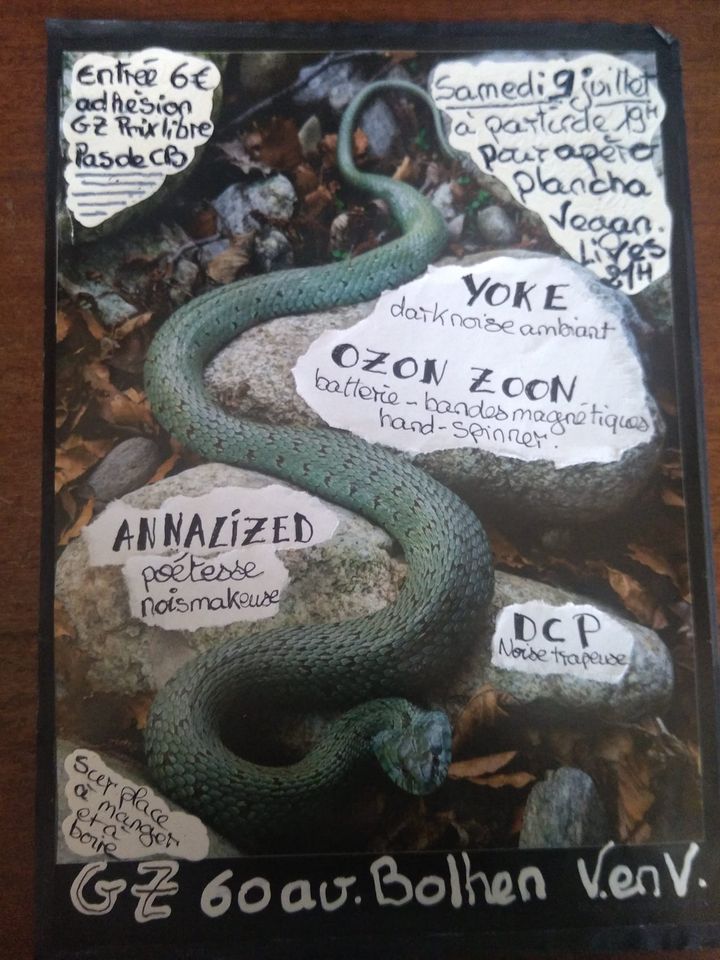 Entrée 6€
adhèsion
GZ Prix libre
Pas de CB
Samedi 9 juillet
à partir de 19H
pour apéro
plancha
Vegan.
Lives
21H
YOKE
dark noise ambiant
OZON ZOON
batterie - bandes magnétiques
hand-spinner.
ANNALiZED
poétesse
noismakeuse
DCP
Noise trapeuse
Sur place
à manger
et à
boire
GZ 60 av. Bolhen V.en V.